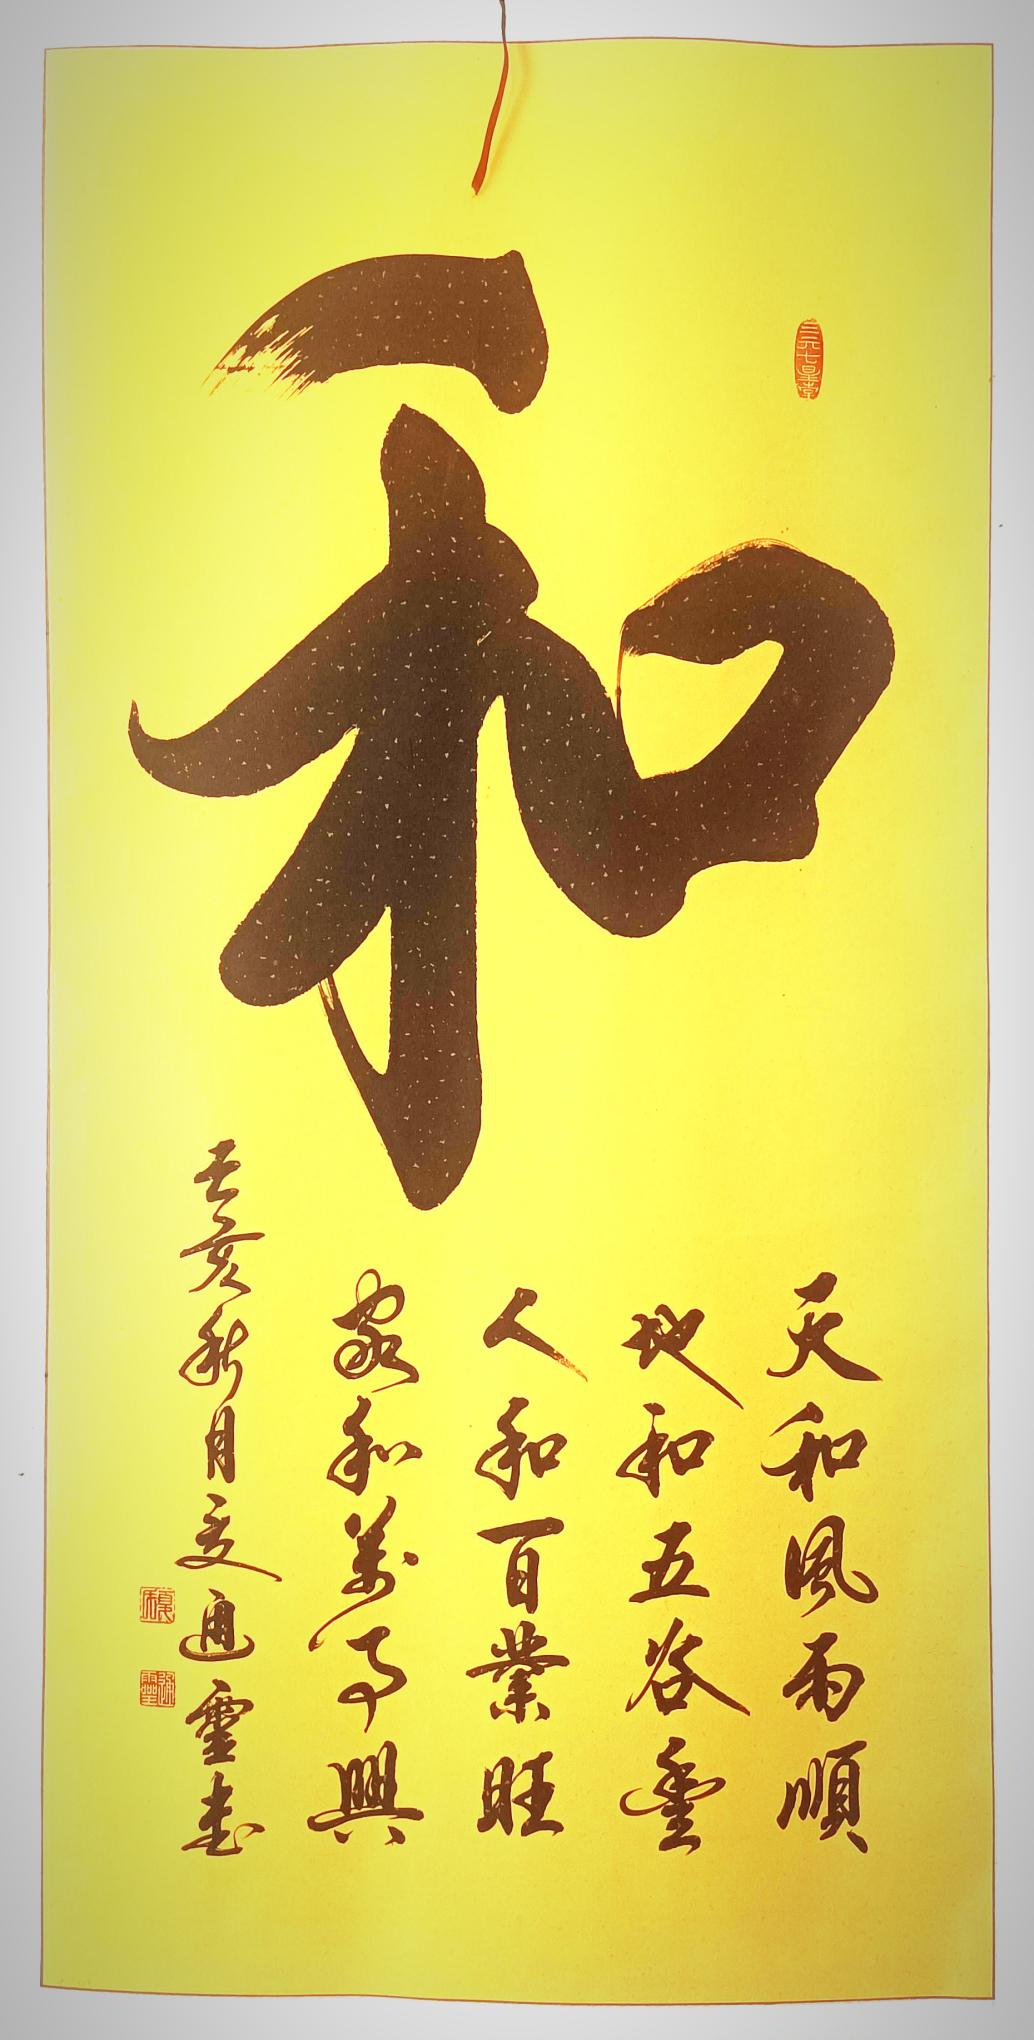 和
天和風雨順
地和五谷豐
人和百業旺
家和萬事興
亥秋月夏通靈書